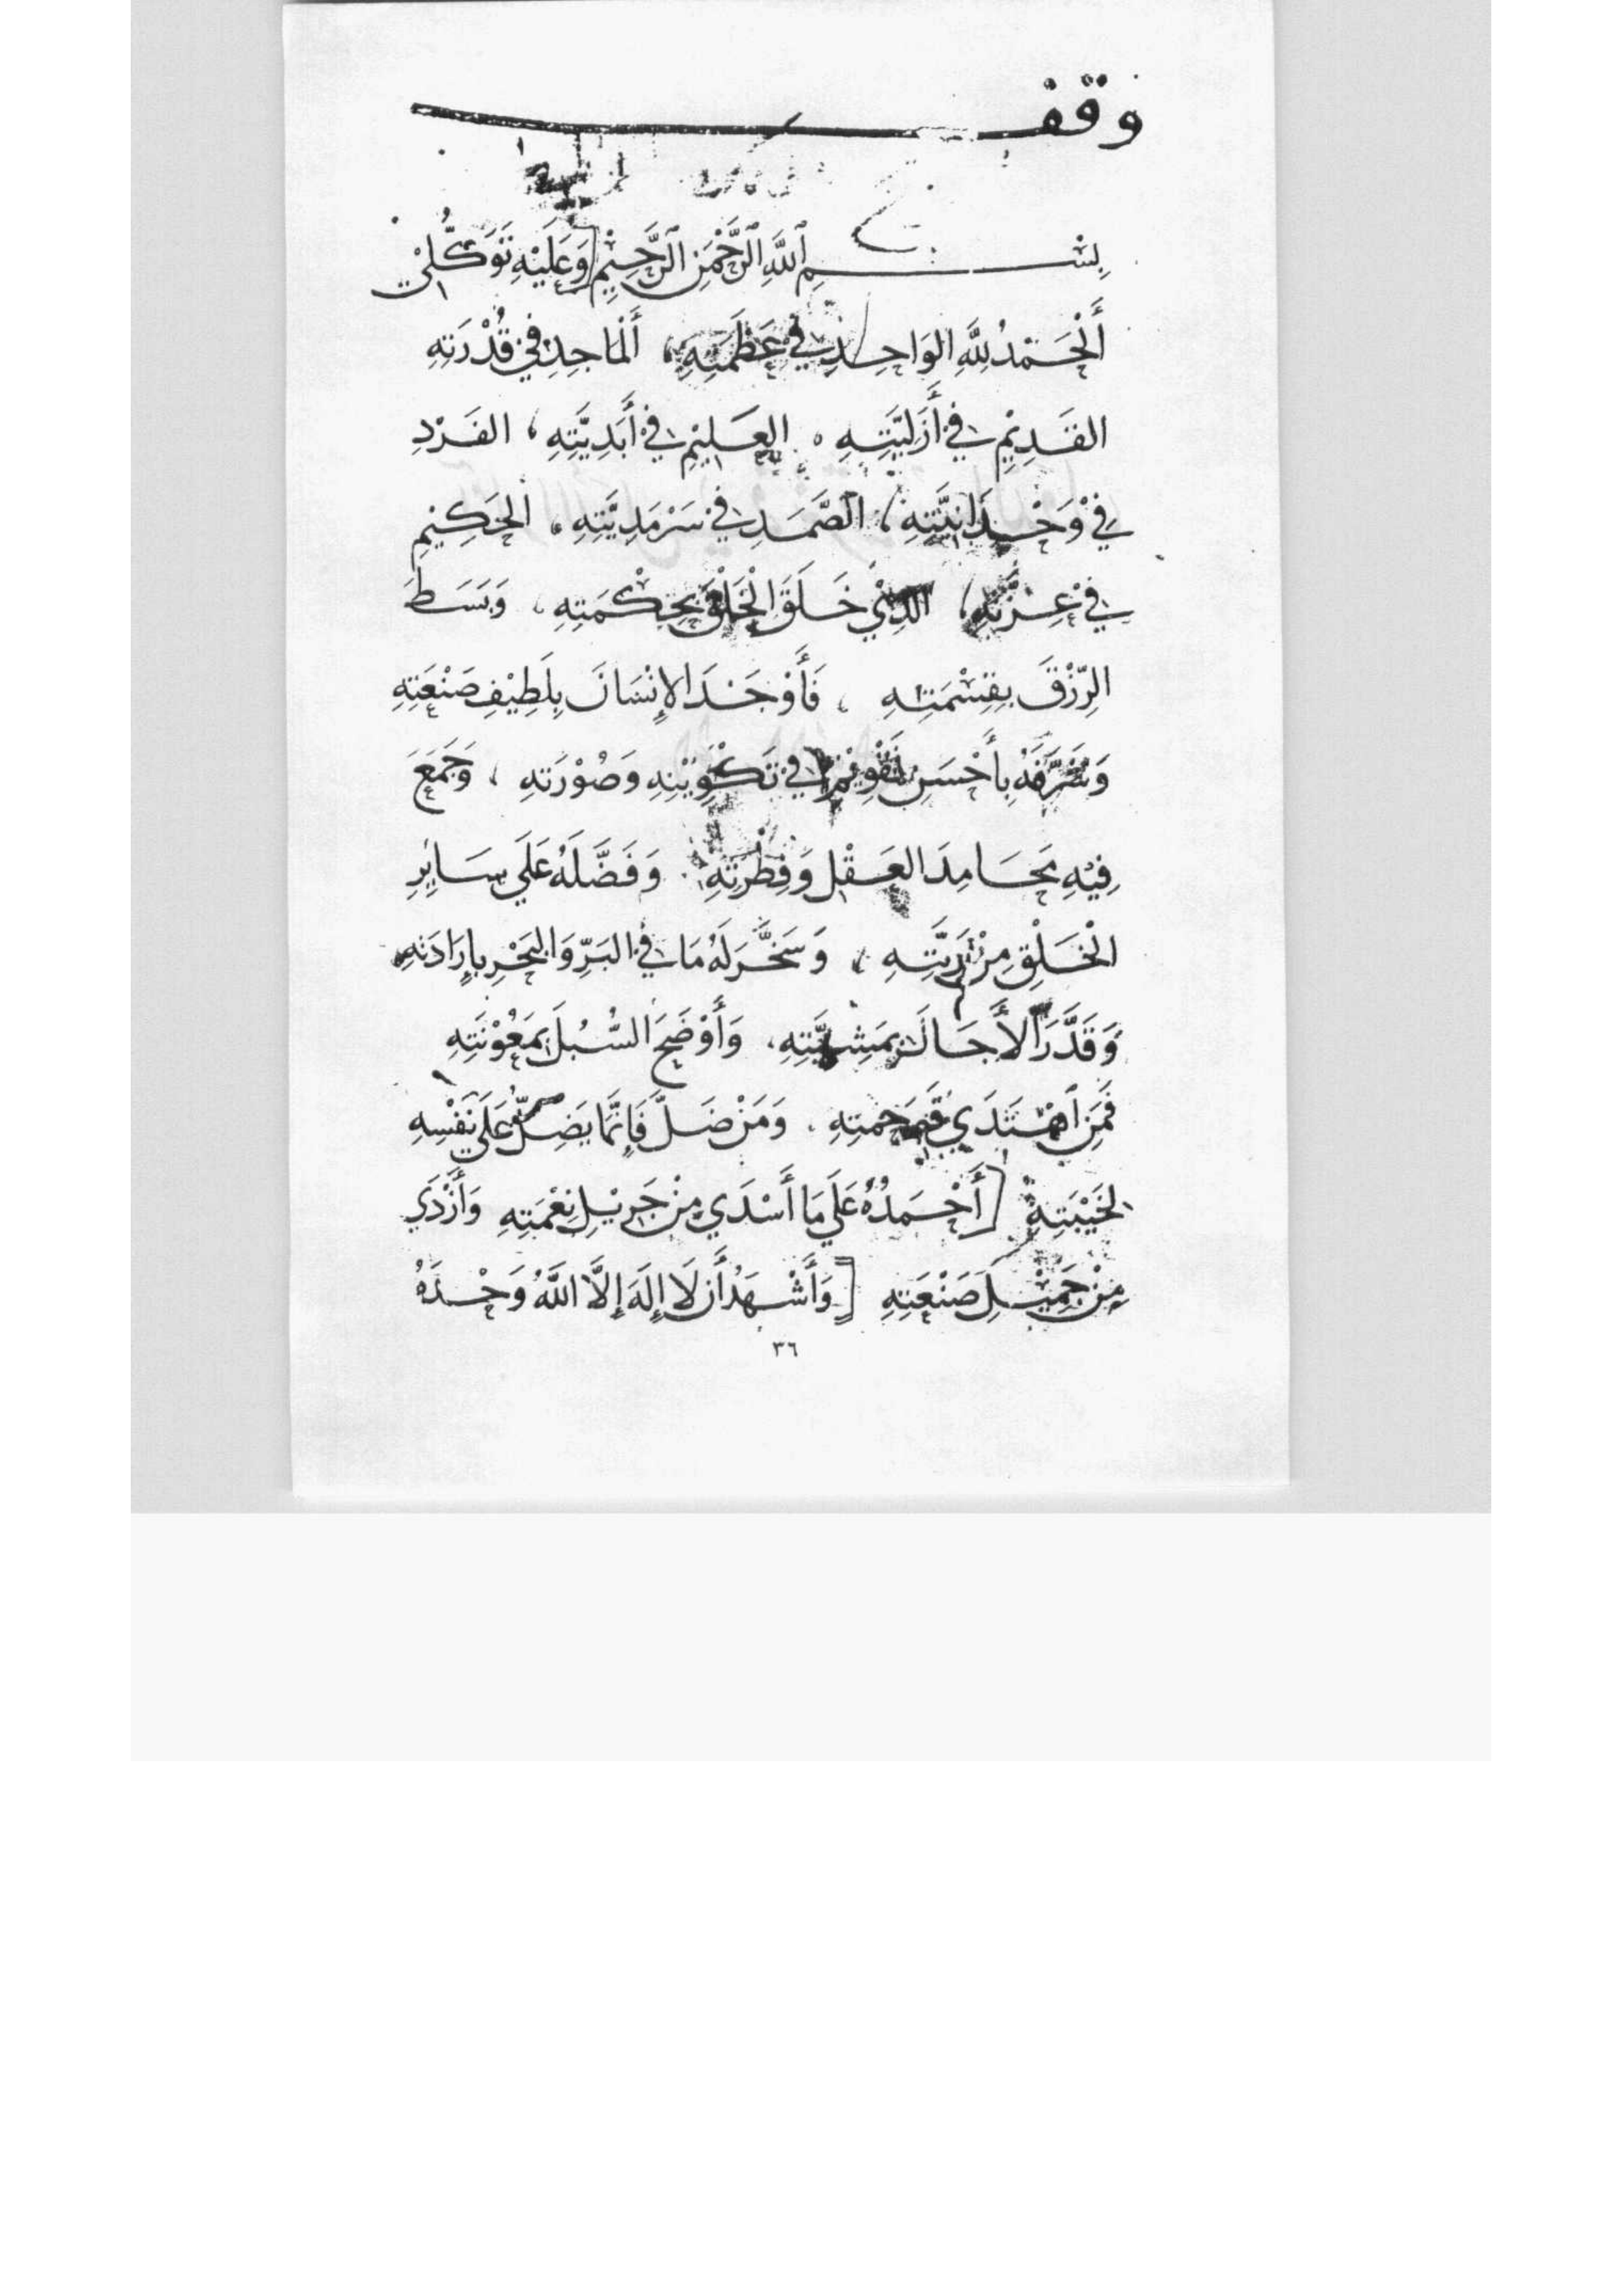 وقف
بِسْمِ اللَّهِ الرَّحْمَنِ الرَّحِيْمِ [وَعَلَيْهِ تَوَكُّلِيْ
أَلْحَمْدُ لِلَّهِ الوَاحِدِ فِي عَظَمَتِهِ، أَلْمَاجِدِ فِي قُدْرَتِهِ
القَدِيْمِ فِي أَزَلِيَّتِهِ ، العَلِيْمِ فِي أَبَدِيَّتِهِ، الفَرْدِ
فِي وَحْدَانِيَّتِهِ، الصَّمَدِ فِي سَرْمَدِيَّتِهِ، الحَكِيْمِ
فِي عِزَّتِهِ، الَّذِيْ خَلَقَ الْخَلْقَ بِحِكْمَتِهِ، وَبَسَطَ
الرِّزْقَ بِقِسْمَتِهِ ، فَأَوْجَدَ الإِنْسَانَ بِلَطِيْفِ صَنْعَتِهِ
وَشَرَّفَهُ بِأَحْسَنِ تَقْوِيْمٍ فِي تَكْوِيْنِهِ وَصُوْرَتِهِ ، وَجَمَعَ
فِيْهِ مَحَامِدَ العَقْلِ وَفِطْرَتِهِ، وَفَضَّلَهُ عَلَى سَايِرِ
الْخَلْقِ مِنْ بَرِيَّتِهِ ، وَسَخَّرَ لَهُ مَا فِي البَرِّ وَالبَحْرِ بِإِرَادَتِهِ
وَقَدَّرَ الأَجَالَ بِمَشِيَّتِهِ، وَأَوْضَحَ السُّبُلَ بِمَعُوْنَتِهِ
فَمَنِ اهْتَدَي وَمَنْ ضَلَّ فَإِنَّمَا يَضِلُّ عَلَى نَفْسِهِ
لِخَيْبَتِهِ [أَحْمَدُهُ عَلَى مَا أَسْدَي مِنْ جَزِيْلِ نِعْمَتِهِ وَأَزْدَي
مِنْ جَمِيْلِ صَنْعَتِهِ [وَأَشْهَدُ أَن لَا إِلَهَ إِلَّا اللَّهُ وَحْدَهُ
٣٦